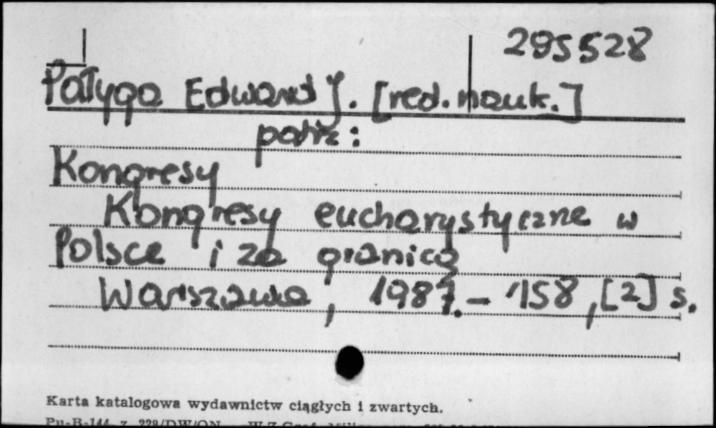 295528
Pałyga Edward J. [red. nauk.]
patrz:
Kongresy
Kongresy eucharystyczne w
Polsce i za granicą
Warszawa, 1987. - 158, [2] s.
Karta katalogowa wydawnictw ciągłych i zwartych.
Pu-B-144 z. 229/DW/ON